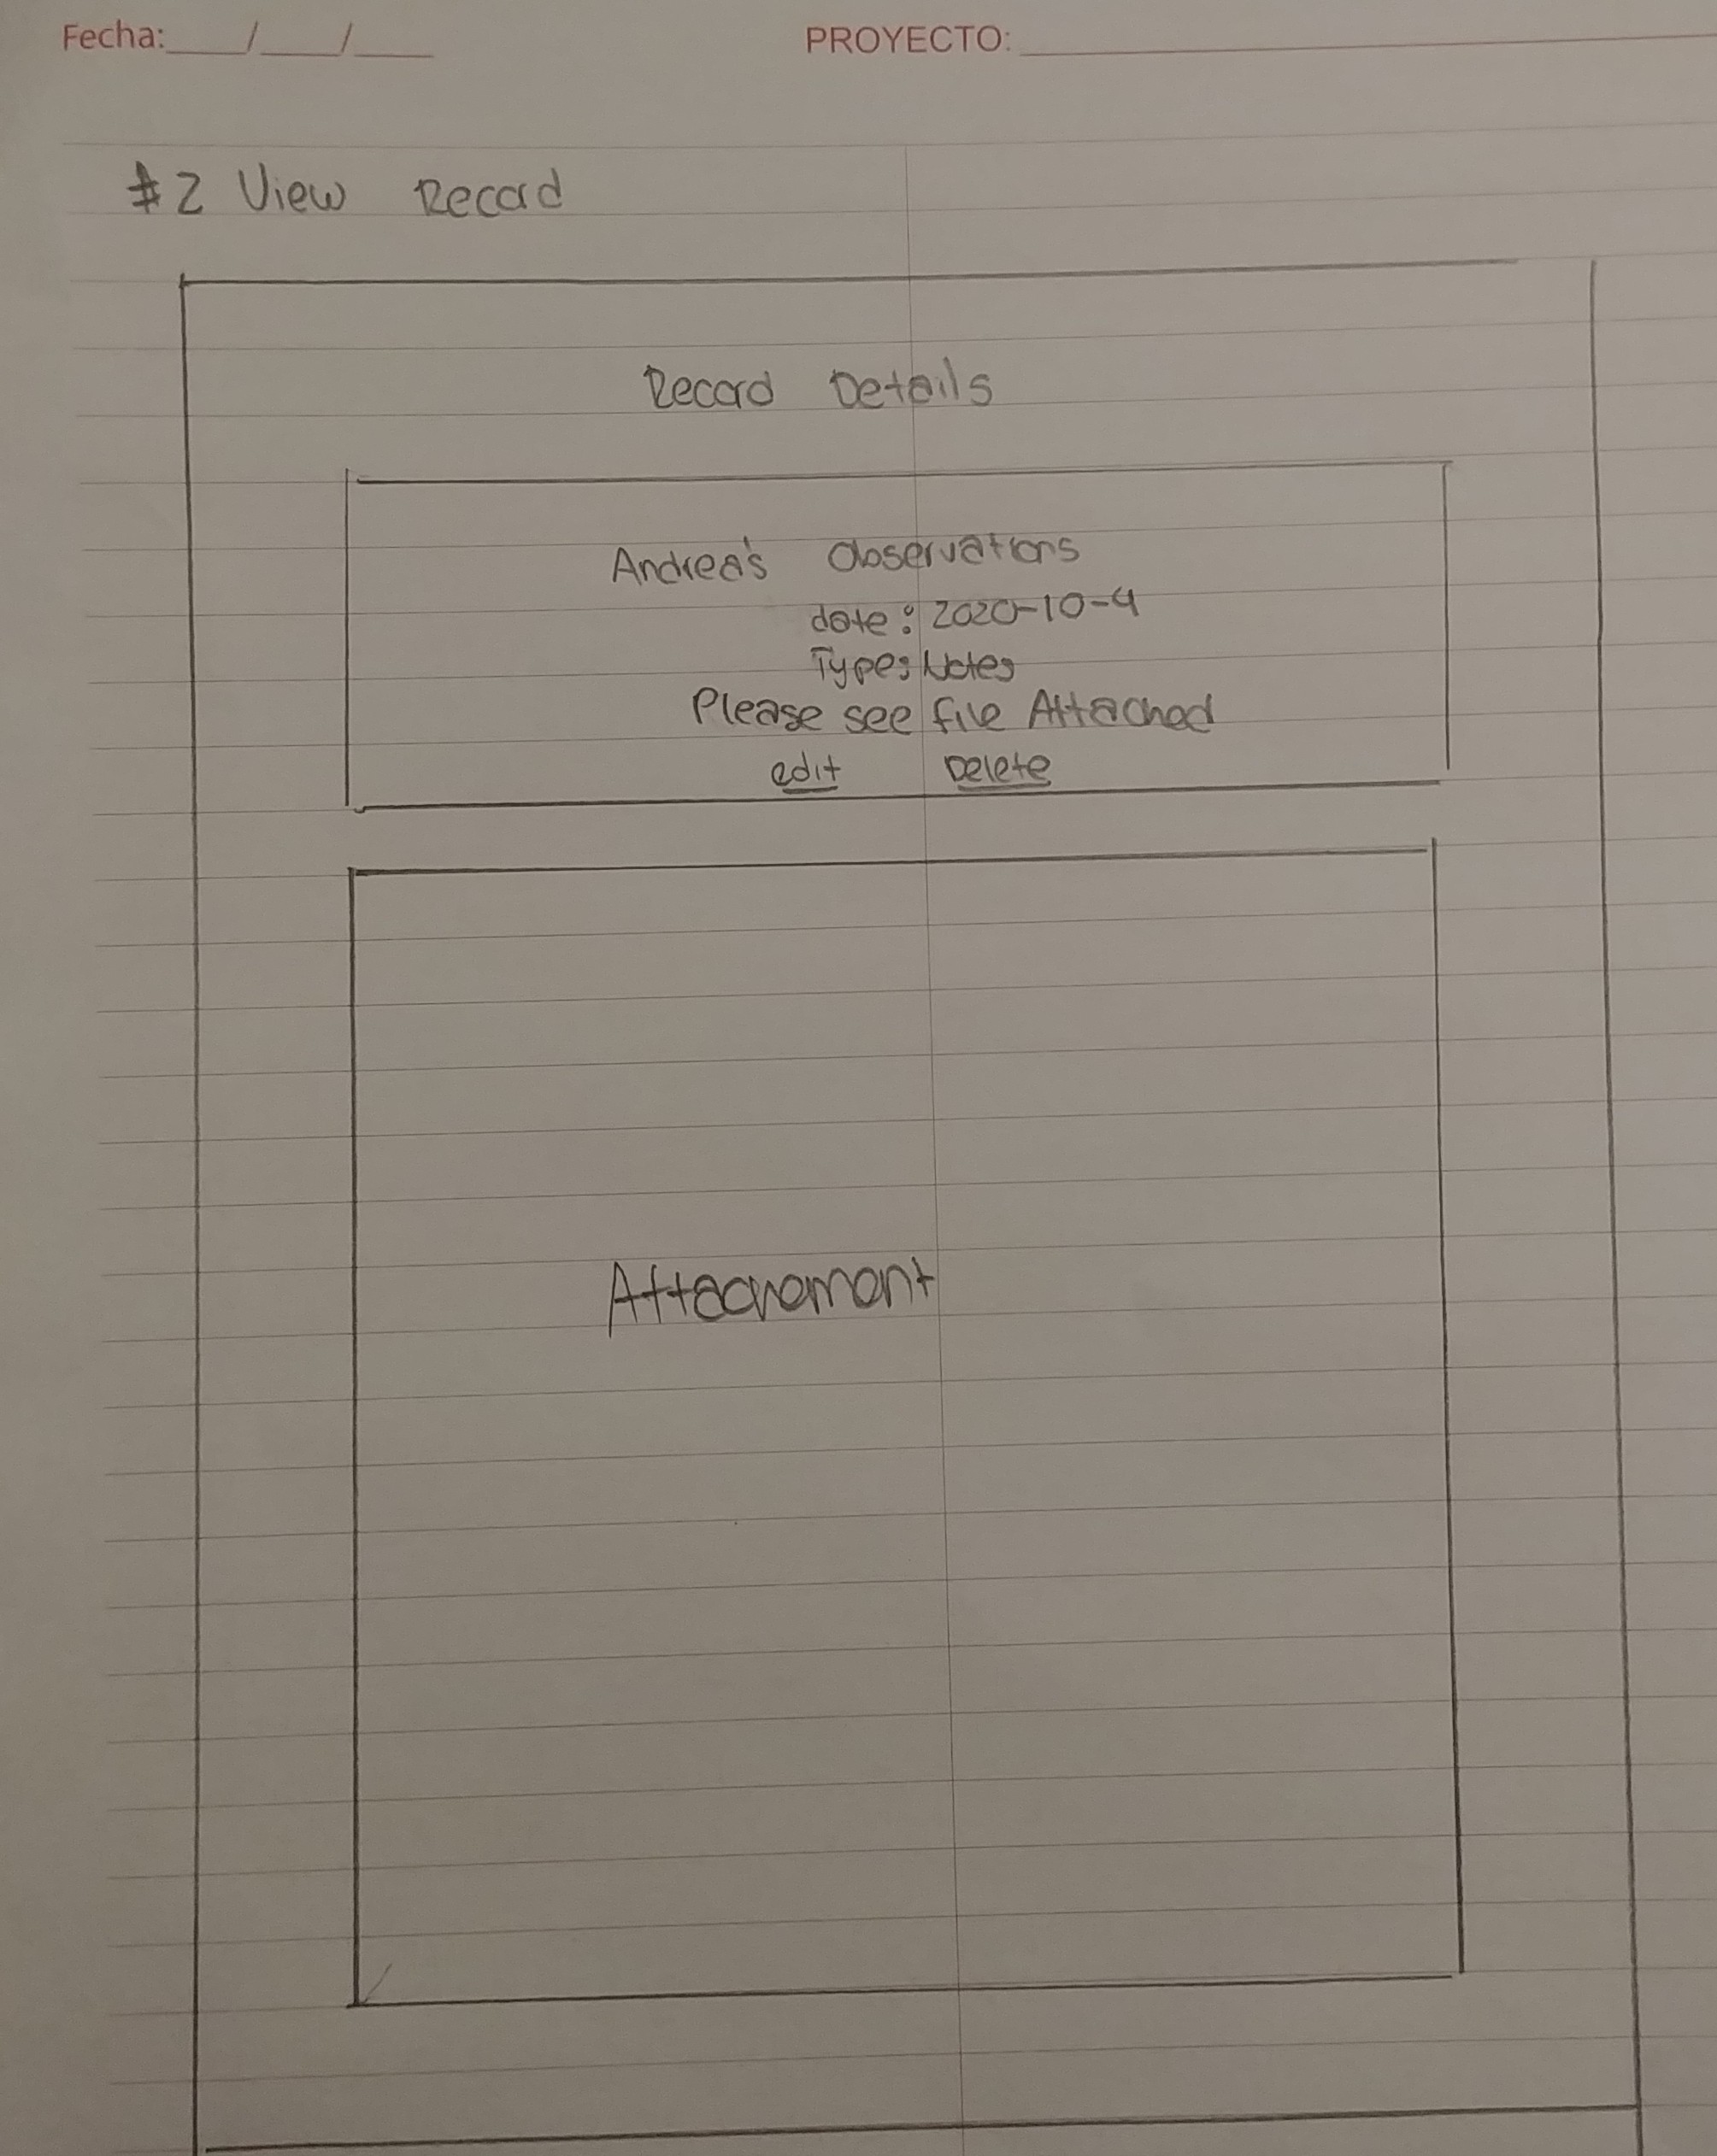 Fecha:____/____/____ PROYECTO:
#2 View Record
Record Details
Andrea's Observations
date: 2020-10-4
Type: Notes
Please see file Attached
edit Delete
Attachement